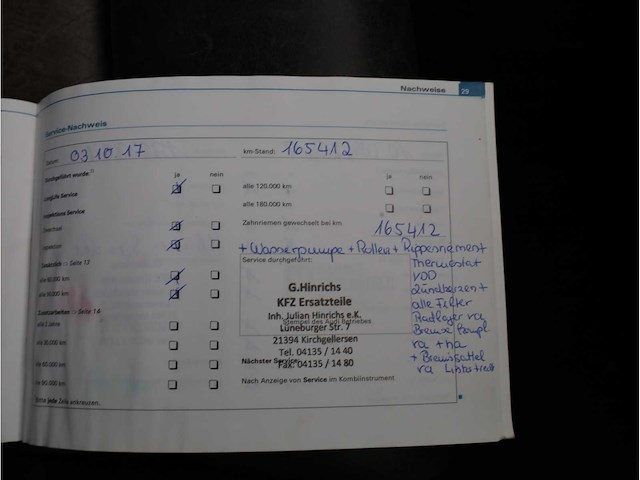 Nachweise 29
Service-Nachweis
Datum: 03.10.17
km-Stand: 165412
Durchgeführt wurde:
ja nein
ja nein
LongLife Service
alle 120.000 km
Inspektions Service
alle 180.000 km
Zahnriemen gewechselt bei km
165412
+ Wasserpumpe + Rollen + Rippenriemen +
Thermostat
VDD
Zündkerzen +
alle Filter
Radlager va
Bremse kompl.
va + ha
+ Bremssattel
va Links + rechts
Service durchgeführt:
G.Hinrichs
KFZ Ersatzteile
Inh. Julian Hinrichs e.K.
Stempel des Audi Betriebes
Lüneburger Str. 7
21394 Kirchgellersen
Tel. 04135 / 14 40
Fax: 04135 / 14 80
Nächster Service:
Nach Anzeige von Service im Kombiinstrument
Zusätzlich: » Seite 13
alle 60.000 km
alle 90.000 km
Zusatzarbeiten: » Seite 14
alle 2 Jahre
alle 30.000 km
alle 60.000 km
alle 90.000 km
Bitte jede Zeile ankreuzen.